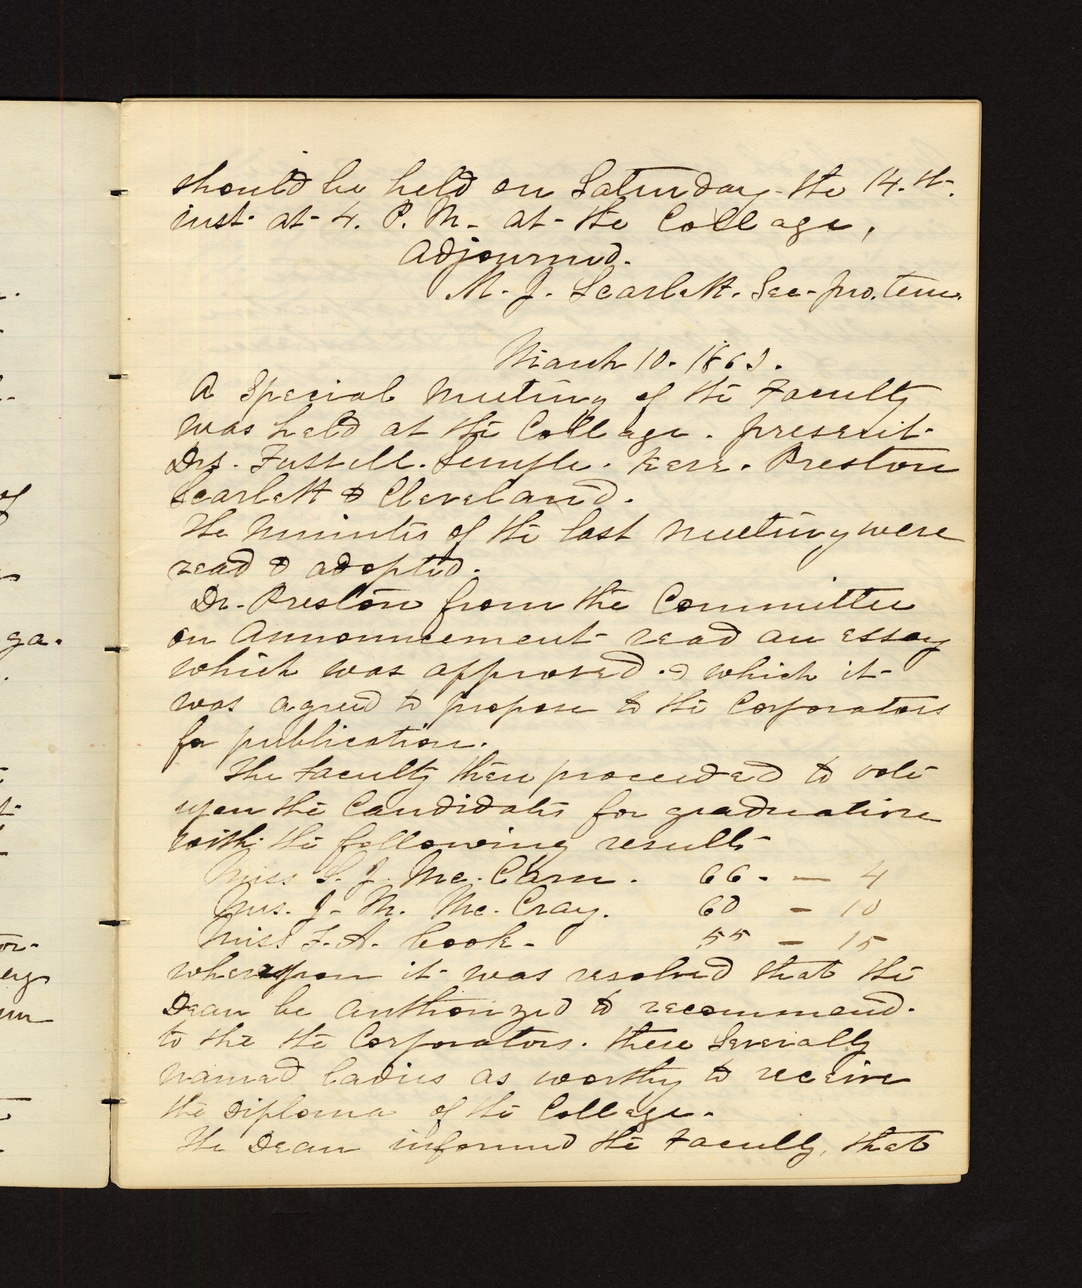 should be held on Saturday the 14.th.
inst. at 4. P. M. at the College,
Adjourned.
M. J. Scarlett. Sec-pro. tem.
March 10. 1863.
A Special Meeting of the Faculty
was held at the College. present
Drs. Fussell. Temple. Kerr. Preston
Scarlett & Cleveland.
The Minutes of the last Meeting were
read & adopted.
Dr. Preston from the Committee
on Announcement read an essay
which was approved & which it
was agreed to propose to the Corporators
for publication.
The Faculty then proceeded to vote
upon the Candidates for graduation
with the following results
Miss S. J. Mc. Carn. 66. — 4
Mrs. J. M. Mc. Cray. 60 — 10
Miss F. A. Cook. 55 — 15
whereupon it was resolved that the
Dean be authorized to recommend.
to the the Corporators. these Severally
named ladies as worthy to receive
the Diploma of the College.
The Dean informed the Faculty, that
of
ga.